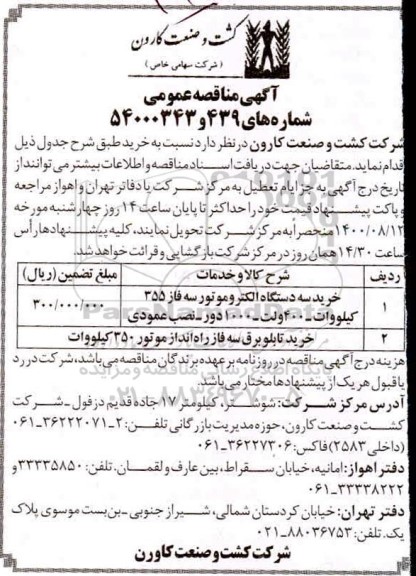 کشت و صنعت کارون
( شرکت سهامی خاص )
آگهی مناقصه عمومی
شماره‌های ۴۳۹ و ۵۴۰۰۰۳۴۳
شرکت کشت و صنعت کارون در نظر دارد نسبت به خرید طبق شرح جدول ذیل
اقدام نماید. متقاضیان جهت دریافت اسناد مناقصه و اطلاعات بیشتر می‌توانند از
تاریخ درج آگهی به جز ایام تعطیل به مرکز شرکت یا دفاتر تهران و اهواز مراجعه
و پاکت پیشنهاد قیمت خود را حداکثر تا پایان ساعت ۱۴ روز چهارشنبه مورخه
۱۴۰۰/۰۸/۱۲ منحصرا به مرکز شرکت تحویل نمایند، کلیه پیشنهادها رأس
ساعت ۱۴/۳۰ همان روز در مرکز شرکت بازگشایی و قرائت خواهد شد.
ردیف شرح کالا و خدمات مبلغ تضمین (ریال)
۱ خرید سه دستگاه الکتروموتور سه فاز ۳۵۵
کیلووات-۴۰۰ ولت-۱۰۰۰ دور-نصب عمودی ۳۰۰/۰۰۰/۰۰۰
۲ خرید تابلو برق سه فاز راه‌انداز موتور ۳۵۰ کیلووات
هزینه درج آگهی مناقصه در روزنامه بر عهده برندگان مناقصه می‌باشد، شرکت در رد
یا قبول هر یک از پیشنهادها مختار می‌باشد.
آدرس مرکز شرکت: شوشتر، کیلومتر ۱۷ جاده قدیم دزفول - شرکت
کشت و صنعت کارون، حوزه مدیریت بازرگانی تلفن: ۲-۳۶۲۲۲۰۷۱-۰۶۱
(داخلی ۲۵۸۳) فاکس: ۳۶۲۲۷۳۰۶-۰۶۱
دفتر اهواز: امانیه، خیابان سقراط، بین عارف و لقمان. تلفن: ۳۳۳۳۵۸۵۰ و
۳۳۳۳۸۲۲۲-۰۶۱
دفتر تهران: خیابان کردستان شمالی، شیراز جنوبی - بن‌بست موسوی پلاک
یک. تلفن: ۸۸۰۳۶۷۵۳-۰۲۱
شرکت کشت و صنعت کاورن